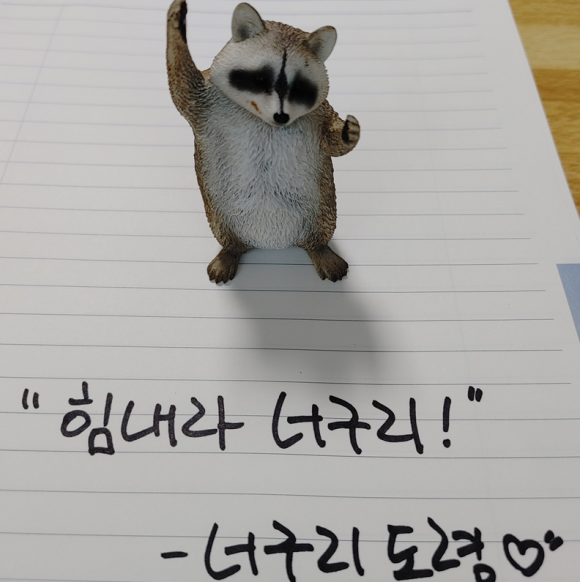 "힘내라 너구리!"
-너구리 도령♡"